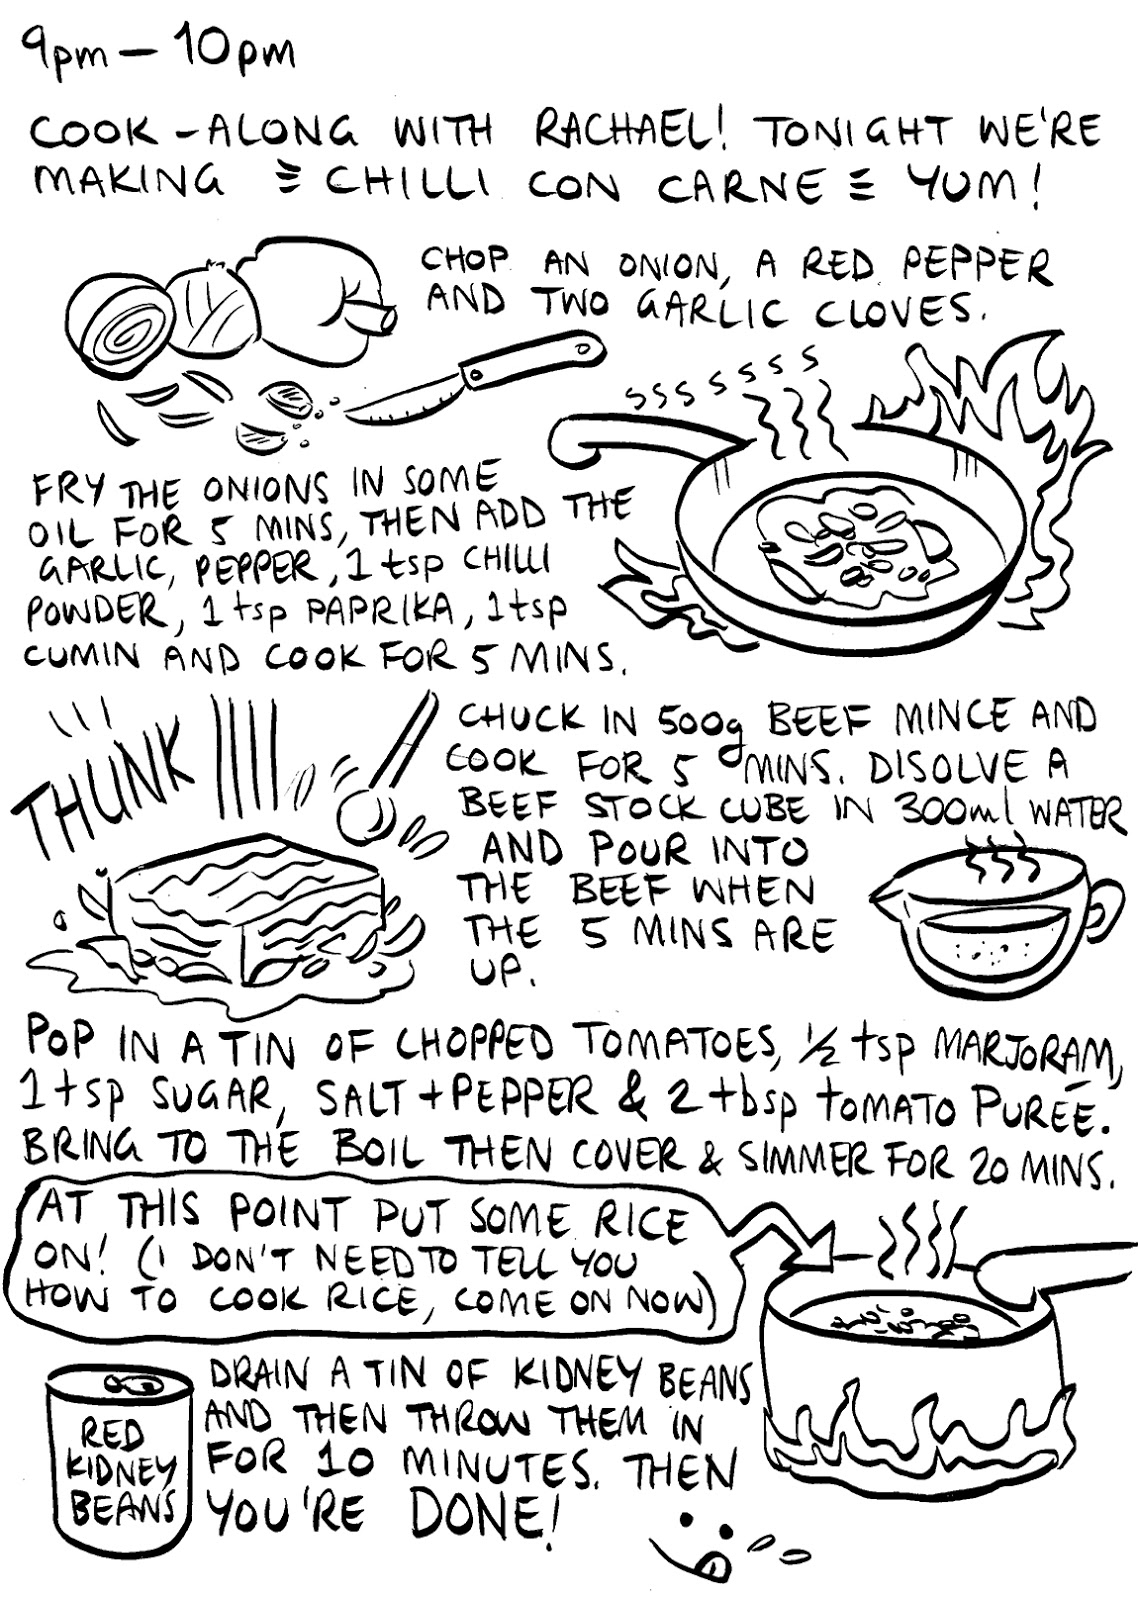 9pm – 10pm
COOK-ALONG WITH RACHAEL! TONIGHT WE'RE
MAKING CHILLI CON CARNE YUM!
CHOP AN ONION, A RED PEPPER
AND TWO GARLIC CLOVES.
SSS SSSS
FRY THE ONIONS IN SOME
OIL FOR 5 MINS, THEN ADD THE
GARLIC, PEPPER, 1 tsp CHILLI
POWDER, 1 tsp PAPRIKA, 1 tsp
CUMIN AND COOK FOR 5 MINS.
THUNK
CHUCK IN 500g BEEF MINCE AND
COOK FOR 5 MINS. DISOLVE A
BEEF STOCK CUBE IN 300ml WATER
AND POUR INTO
THE BEEF WHEN
THE 5 MINS ARE
UP.
POP IN A TIN OF CHOPPED TOMATOES, ½ tsp MARJORAM,
1 tsp SUGAR, SALT + PEPPER & 2 tbsp TOMATO PURÉE.
BRING TO THE BOIL THEN COVER & SIMMER FOR 20 MINS.
AT THIS POINT PUT SOME RICE
ON! (I DON'T NEED TO TELL YOU
HOW TO COOK RICE, COME ON NOW)
DRAIN A TIN OF KIDNEY BEANS
AND THEN THROW THEM IN
FOR 10 MINUTES. THEN
YOU'RE DONE!
RED
KIDNEY
BEANS